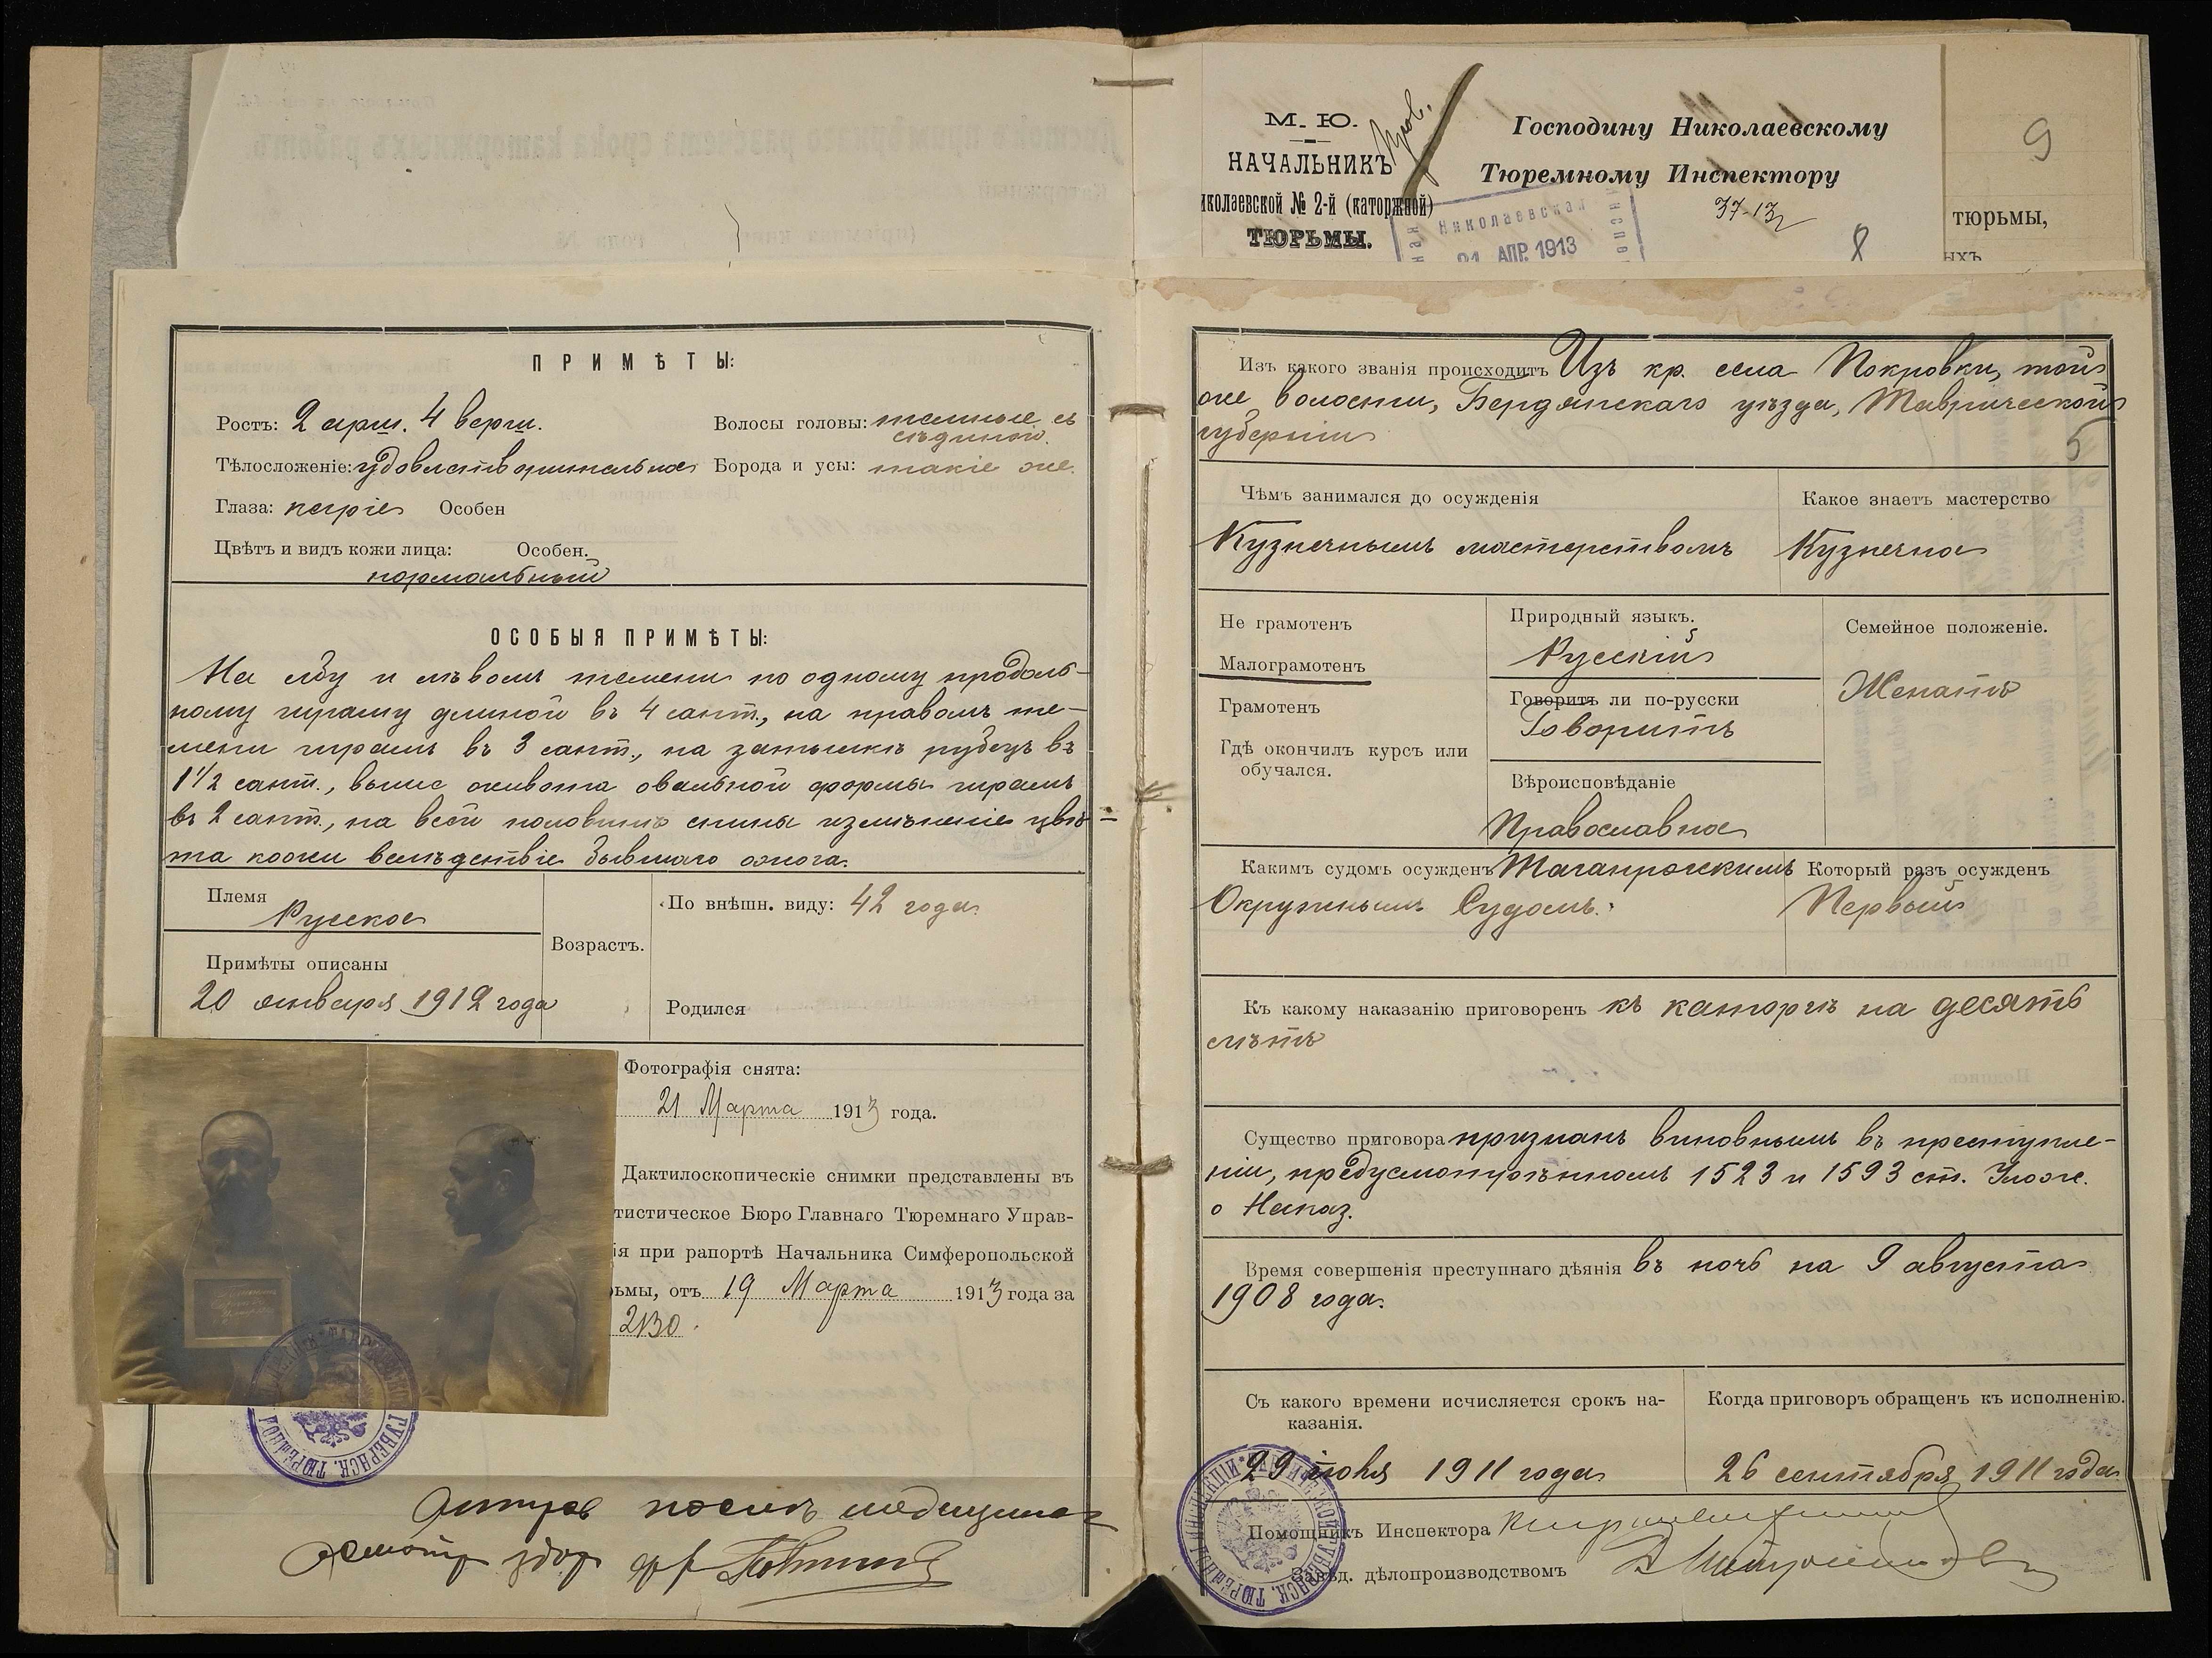 М. Ю.
НАЧАЛЬНИКЪ
иколаевской № 2-й (каторжной)
ТЮРЬМЫ.
Господину Николаевскому
Тюремному Инспектору
37-13
Николаевская
21 АПР. 1913
8
9
тюрьмы,
ыхъ
ПРИМѢТЫ:
Ростъ: 2 арш. 4 верш.
Волосы головы: темные съ
сѣдиной.
Тѣлосложеніе: удовлетворительное
Борода и усы: такіе же.
Глаза: каріе Особен
Цвѣтъ и видъ кожи лица: Особен.
нормальный
ОСОБЫЯ ПРИМѢТЫ:
На лбу и лѣвомъ темени по одному продоль-
ному шраму длиной въ 4 сант., на правомъ те-
мени шрамъ въ 3 сант., на затылкѣ рубецъ въ
1 1/2 сант., выше живота овальной формы шрамъ
въ 2 сант., на всей половинѣ спины измѣненіе цвѣ-
та кожи вслѣдствіе бывшаго ожога.
Племя
Русское
Примѣты описаны
20 января 1912 года
Возрастъ.
По внѣшн. виду: 42 года
Родился
Фотографія снята:
21 Марта 1913 года.
Дактилоскопическіе снимки представлены въ
тистическое Бюро Главнаго Тюремнаго Управ-
ія при рапортѣ Начальника Симферопольской
рьмы, отъ 19 Марта 1913 года за
2130.
осмотр
Изъ какого званія происходитъ Изъ кр. села Покровки, той
же волости, Бердянскаго уѣзда, Таврической
губерніи
5
Чѣмъ занимался до осужденія
Кузнечнымъ мастерствомъ
Какое знаетъ мастерство
Кузнечное
Не грамотенъ
Малограмотенъ
Грамотенъ
Гдѣ окончилъ курсъ или
обучался.
Природный языкъ.
Русскій
Говоритъ ли по-русски
Говоритъ
Вѣроисповѣданіе
Православное
Семейное положеніе.
Женатъ
Какимъ судомъ осужденъ Таганрогскимъ
Окружнымъ Судомъ.
Который разъ осужденъ
Первый
Къ какому наказанію приговоренъ къ каторгѣ на десять
лѣтъ
Существо приговора признанъ виновнымъ въ преступле-
ніи, предусмотрѣнномъ 1523 и 1593 ст. Улож.
о Наказ.
Время совершенія преступнаго дѣянія въ ночь на 9 августа
1908 года.
Съ какого времени исчисляется срокъ на-
казанія.
29 іюля 1911 года
Когда приговоръ обращенъ къ исполненію.
26 сентября 1911 года
Помощникъ Инспектора
Завѣд. дѣлопроизводствомъ